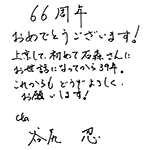 66周年
おめでとうございます!
上京して、初めて石森さんに
お世話になってから39年。
これからもどうぞよろしく
お願いします!
忍